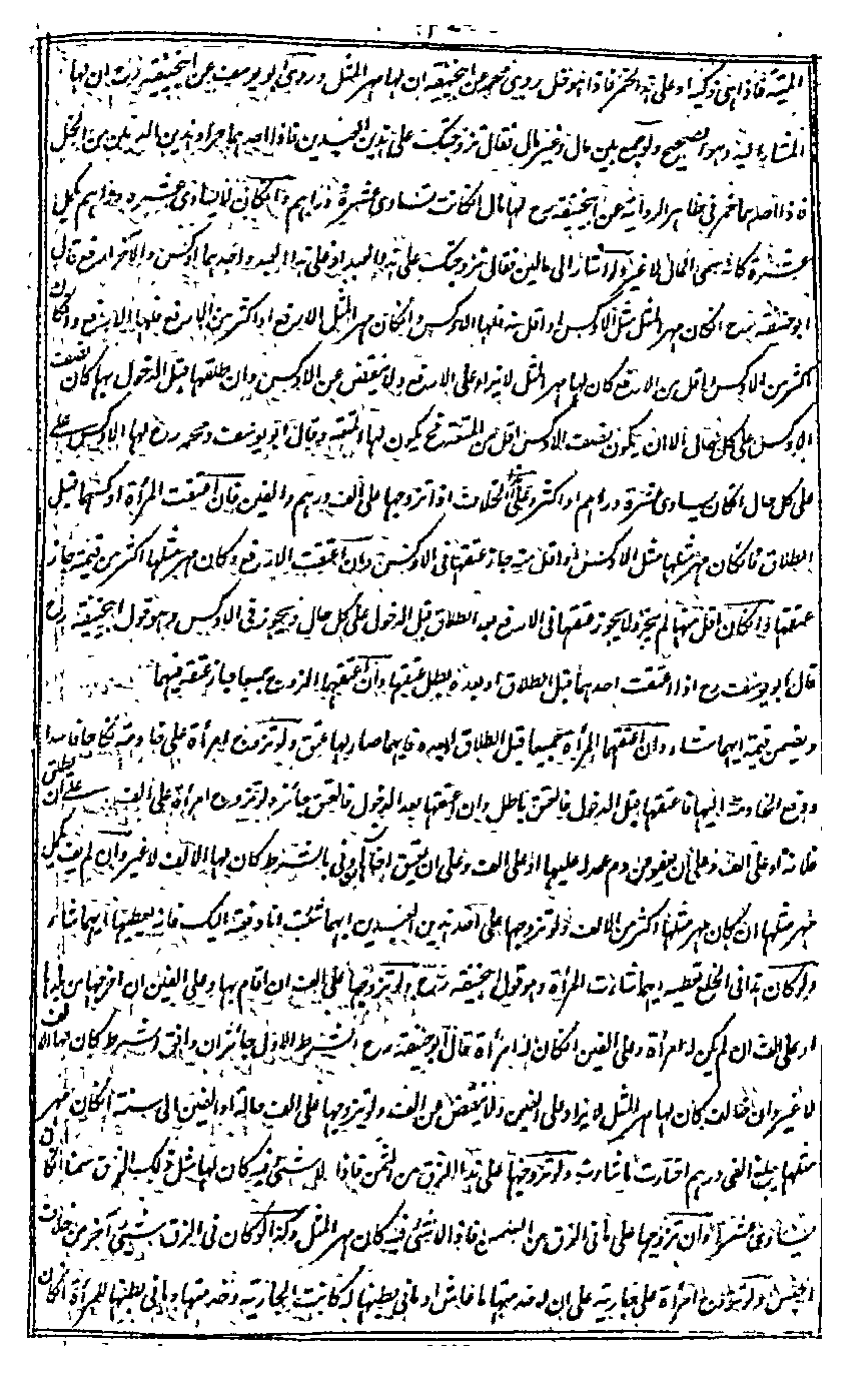 الميتة فاذا هى ذكية او على هذا الخمر فاذا هو خل روى محمد عن ابيحنيفة ان لها مهر المثل وروى ابو يوسف عن ابيحنيفة رح ان لها
المشار اليه وهو الصحيح ولو جمع بين مال وغير مال فقال تزوجتك على هذين العبدين فاذا احدهما حر او هذين الدنين من الخل
فاذا احدهما خمر فى ظاهر الرواية عن ابيحنيفة رح لها مال ان كانت تساوى عشرة دراهم وان كان لا يساوى عشرة دراهم يكمل
عشرة كانه سمى المال لا غير ولو اشار الى مالين فقال تزوجتك على هذا العبد او على هذا العبد واحدهما اوكس والآخر ارفع قال
ابو حنيفة رح ان كان مهر المثل مثل الاوكس او اقل منه فلها الاوكس وان كان مهر المثل الارفع او اكثر من الارفع فلها الارفع وان كان
اكثر من الاوكس واقل من الارفع كان لها مهر المثل لا يزاد على الارفع ولا ينقص عن الاوكس وان طلقها قبل الدخول بها كان نصف
الاوكس على كل حال الا ان يكون نصف الاوكس اقل من المتعة فح يكون لها المتعة وقال ابو يوسف ومحمد رح لها الاوكس على
على كل حال ان كان يساوى عشرة دراهم او اكثر وعلى هذا الخلاف اذا تزوجها على الف درهم والفين فان اعتقت المرأة اوكسهما قبل
الطلاق فان كان مهر مثلها مثل الاوكس او اقل منه جاز عتقها فى الاوكس وان اعتقت الارفع وكان مهر مثلها اكثر من قيمته جاز
عتقها وان كان اقل منها لم يجز ولا يجوز عتقها فى الارفع بعد الطلاق قبل الدخول على كل حال ويجوز فى الاوكس وهو قول ابيحنيفة رح
قال ابو يوسف رح اذا اعتقت احدهما قبل الطلاق او بعده بطل عتقها وان اعتقهما الزوج جميعا جاز عتقه فيهما
ويضمن قيمة ايهما شاء وان اعتقتهما المرأة جميعا قبل الطلاق او بعده فايهما صار لها عتق ولو تزوج امرأة على خادمة نكاحا فاسدا
ودفع الخادمة اليها فاعتقها قبل الدخول فالعتق باطل وان اعتقتها بعد الدخول فالعتق جائز ولو تزوج امرأة على الف على ان يطلق
فلانة او على الف وعلى ان يعفو عن دم عمد له عليها او على الف وعلى ان يعتق اباها ان وفى بالشرط كان لها الالف لا غير وان لم يف يكمل
مهر مثلها ان كان مهر مثلها اكثر من الالف ولو تزوجها على احد هذين العبدين ايهما شئت انا دفعته اليك فانه يعطيها ايهما شاء
ولو كان هذا فى الخلع تعطيه ايهما شاءت المرأة وهو قول ابيحنيفة رح ولو تزوجها على الف ان اقام بها وعلى الفين ان اخرجها من بلدها
او على الف ان لم يكن له امرأة وعلى الفين ان كان له امرأة قال ابو حنيفة رح الشرط الاول جائز ان وافق الشرط كان لها الالف
لا غير وان خالف كان لها مهر المثل لا يزاد على الفين ولا ينقص عن الف ولو تزوجها على الف حالة او الفين الى سنة ان كان مهر
مثلها مبلغ الفى درهم اختارت ما شاءت ولو تزوجها على هذا الزق من السمن فاذا لا شئ فيه كان لها مثل ذلك الزق سمنا ان كان
يساوى عشرة وان تزوجها على ما فى الزق من السمن فاذا لا شئ فيه كان مهر المثل وكذا لو كان فى الزق شئ آخر من خلاف
الجنس ولو تزوج امرأة على جارية على ان له خدمتها ما عاش او ما فى بطنها له كانت الجارية وخدمتها وما فى بطنها للمرأة ان كان